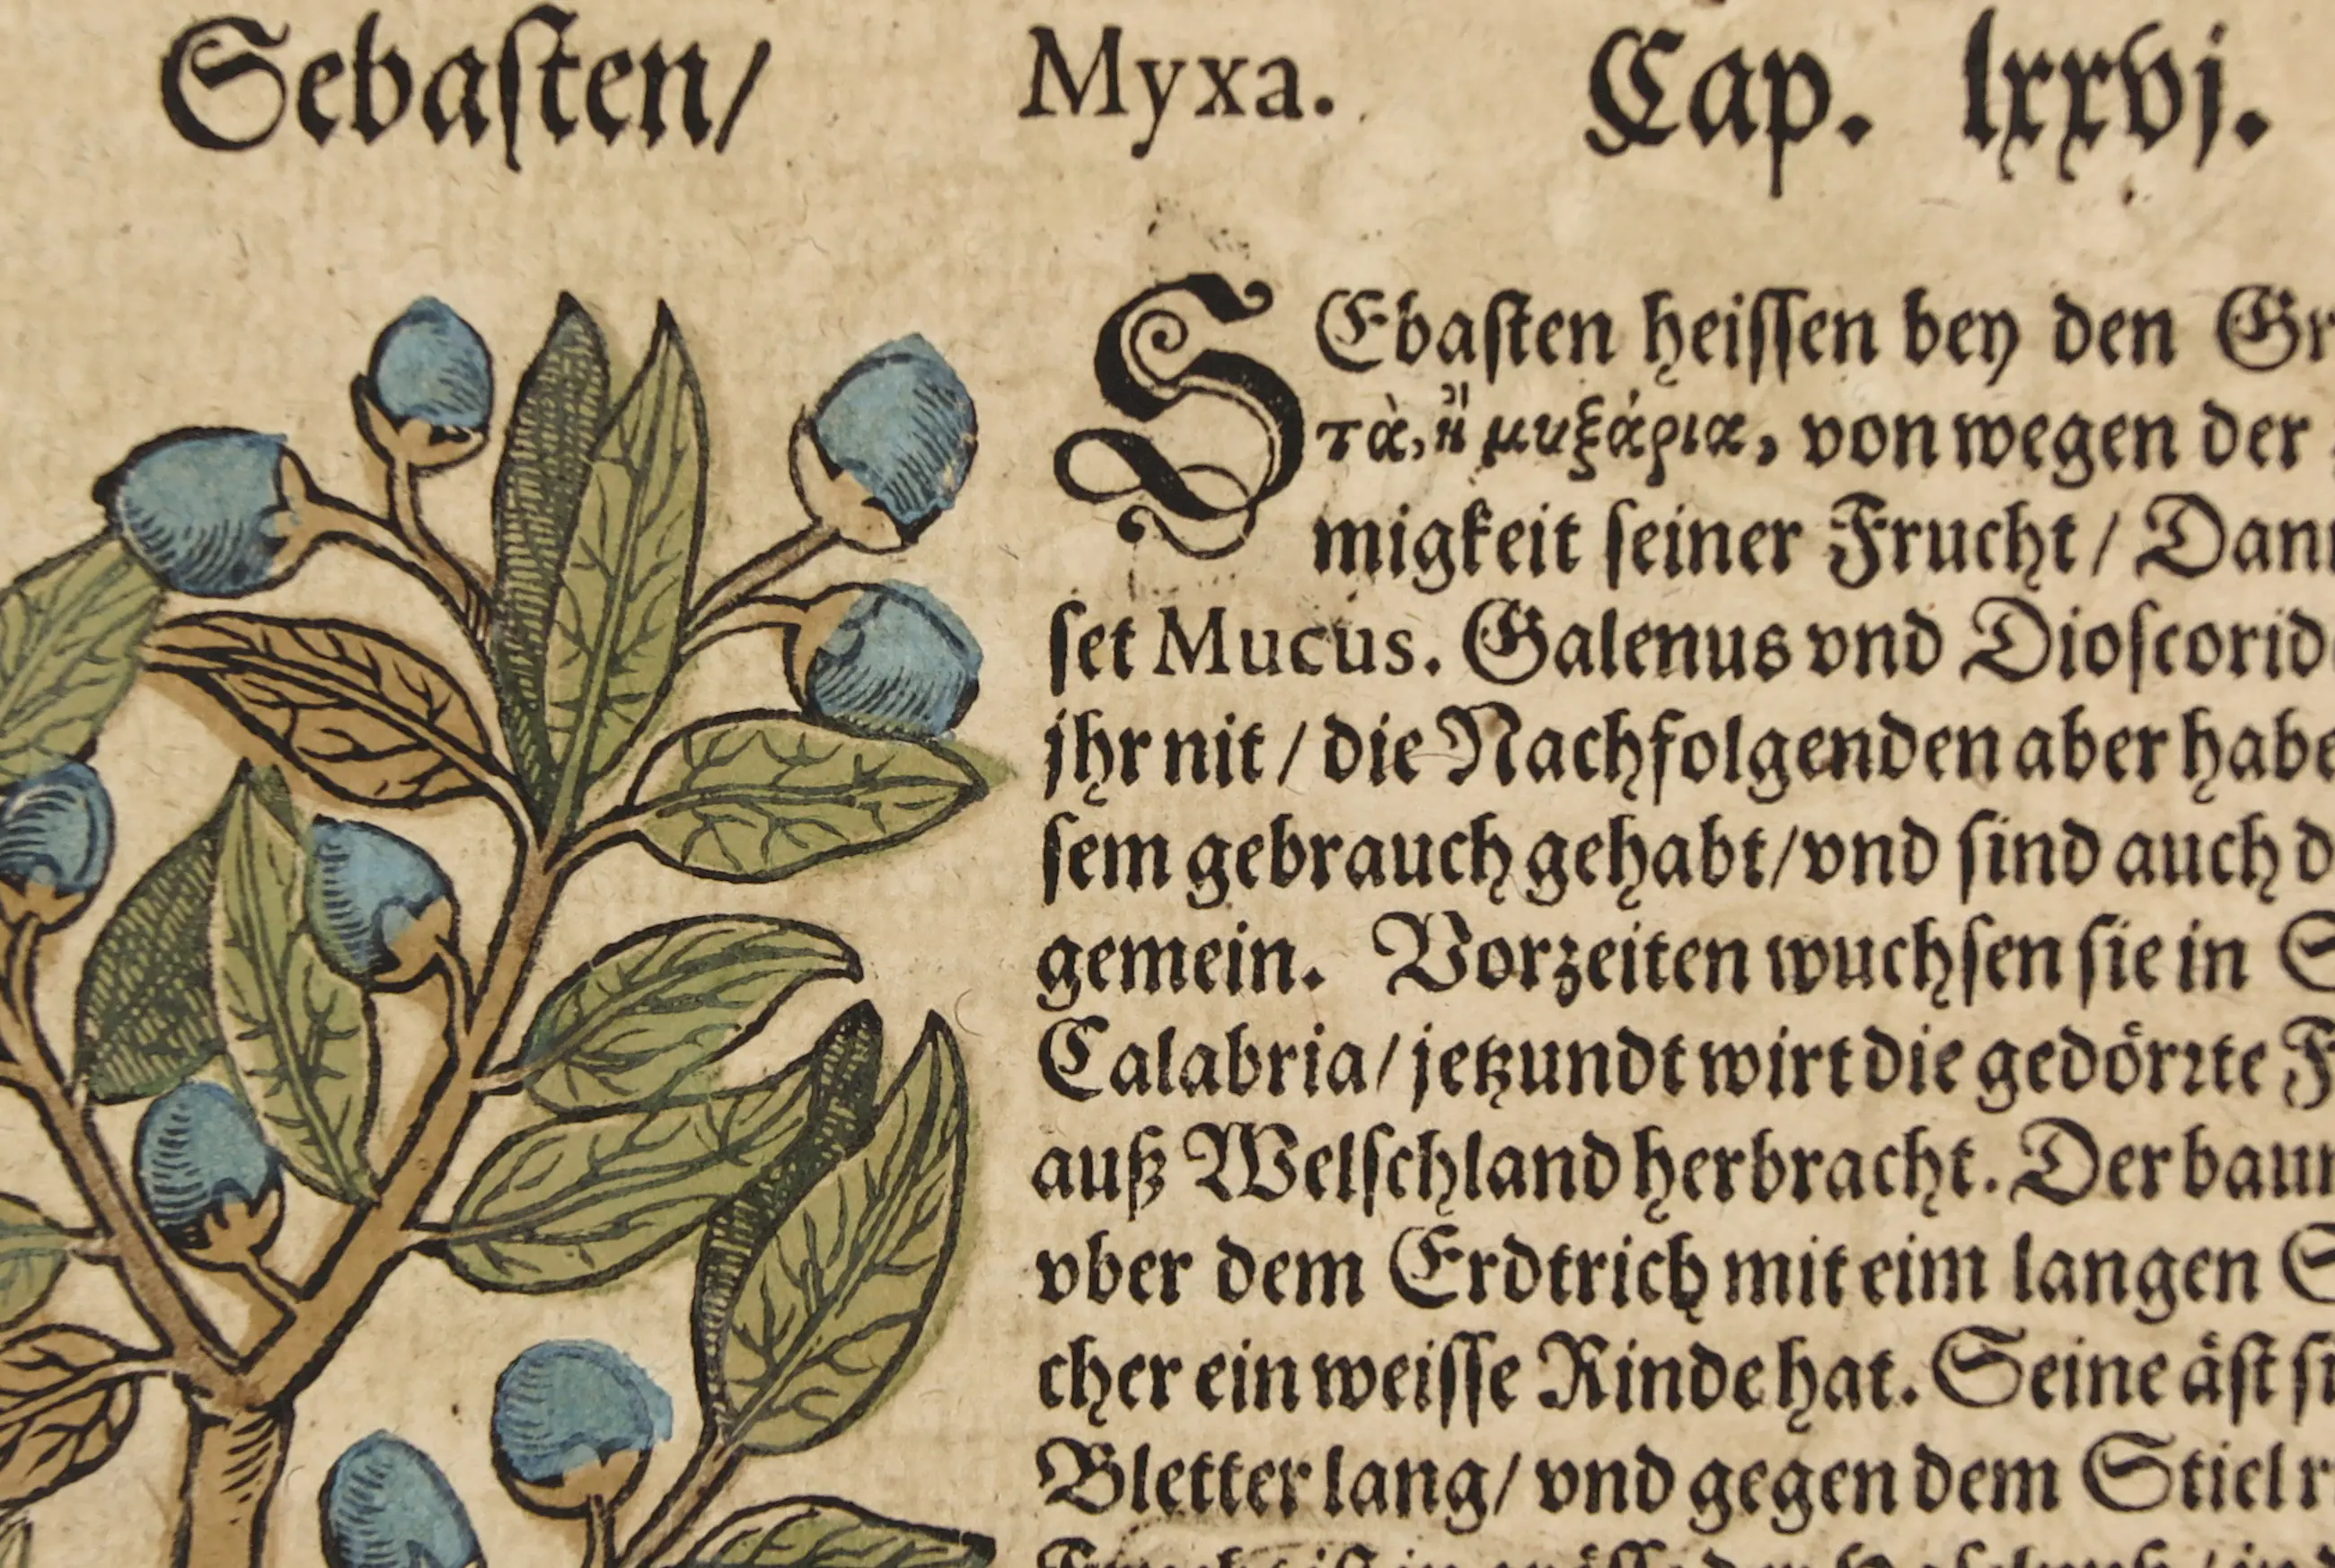 Sebaſten/ Myxa. Cap. lxxvj.
SEbaſten heiſſen bey den
τὰ, ἢ μυξάρια, von wegen der
migkeit ſeiner Frucht /
ſet Mucus. Galenus vnd
jhr nit / die Nachfolgenden aber
ſem gebrauch gehabt/vnd ſind auch
gemein. Vorzeiten wuchſen ſie in
Calabria/ jetzundt wirt die gedörꝛte
auß Welſchland herbracht. Der
vber dem Erdtrich mit eim langen
cher ein weiſſe Rinde hat. Seine äſt
Bletter lang/ vnd gegen dem Stiel